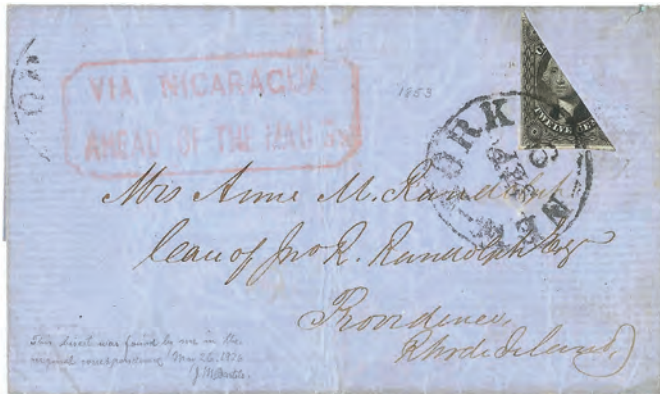 VIA NICARAGUA
AHEAD OF THE MAILS
1853
TWELVE CEN
NEW YORK
SEP
Mrs Anne M. Randolph
Care of Jno R. Randolph Esq
Providence,
Rhode Island
This bisect was found by me in the
original correspondence Mar 26, 1926